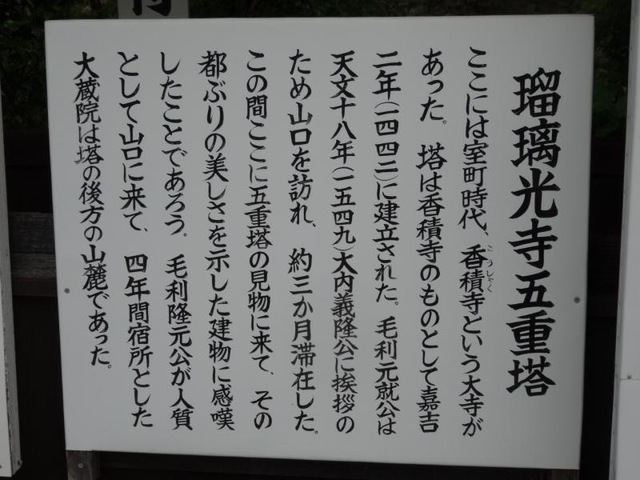 瑠璃光寺五重塔
ここには室町時代、香積寺という大寺が
こうしゃく
あった。塔は香積寺のものとして嘉吉
二年(一四四二)に建立された。毛利元就公は
天文十八年(一五四九)大内義隆公に挨拶の
ため山口を訪れ、約三か月滞在した。
この間ここに五重塔の見物に来て、その
都ぶりの美しさを示した建物に感嘆
したことであろう。毛利隆元公が人質
として山口に来て、四年間宿所とした
大蔵院は塔の後方の山麓であった。